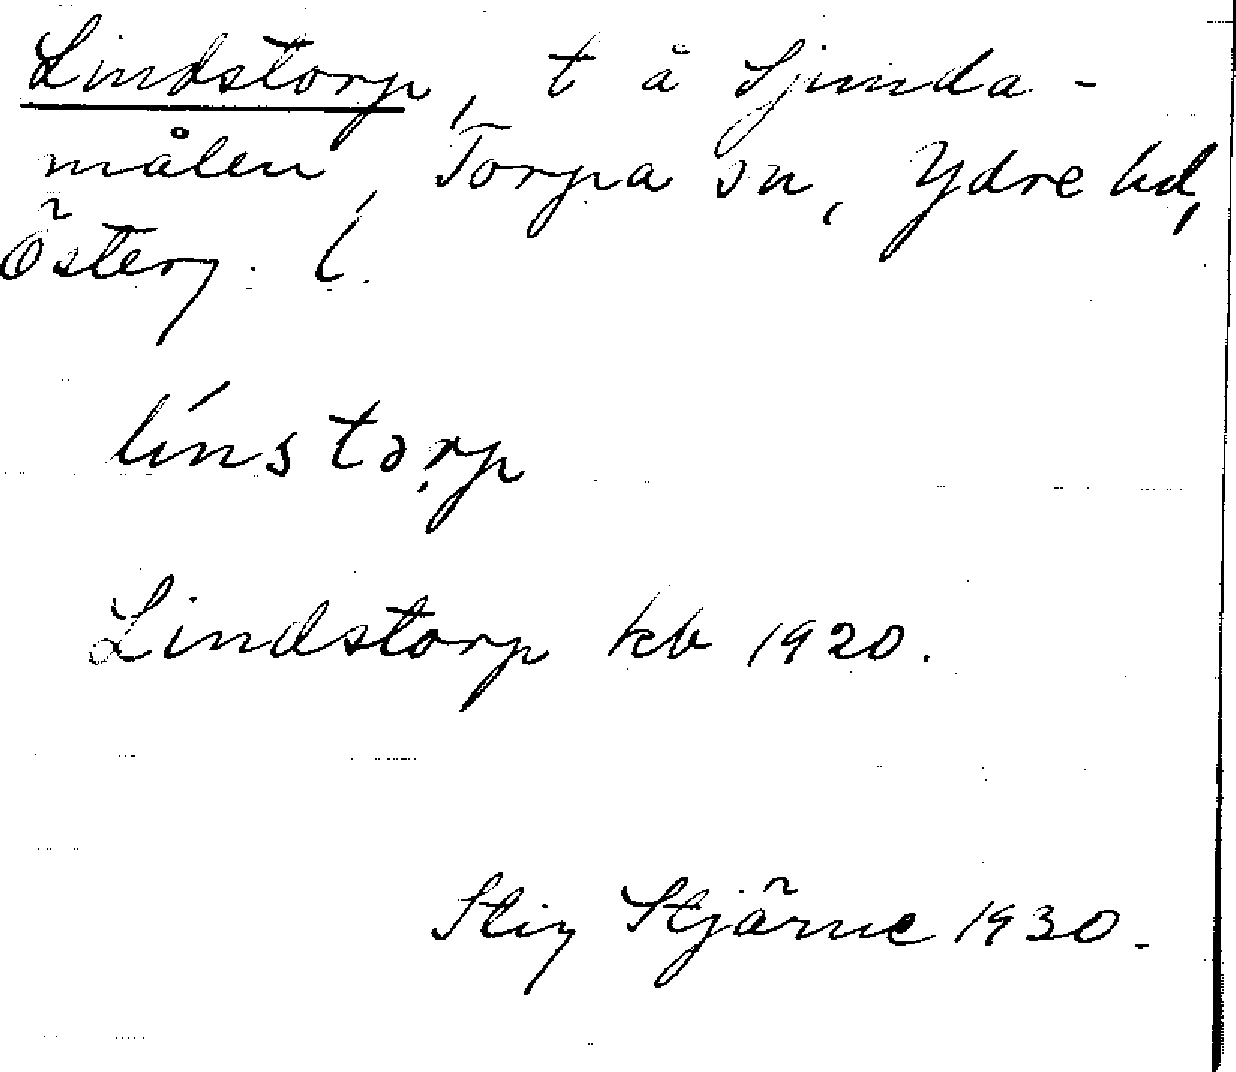 Lindstorp, t å Sjunda-
målen, Torpa sn, Ydre hd,
Österg. l.
línstọrp
Lindstorp kb 1920.
Stig Stjärne 1930.